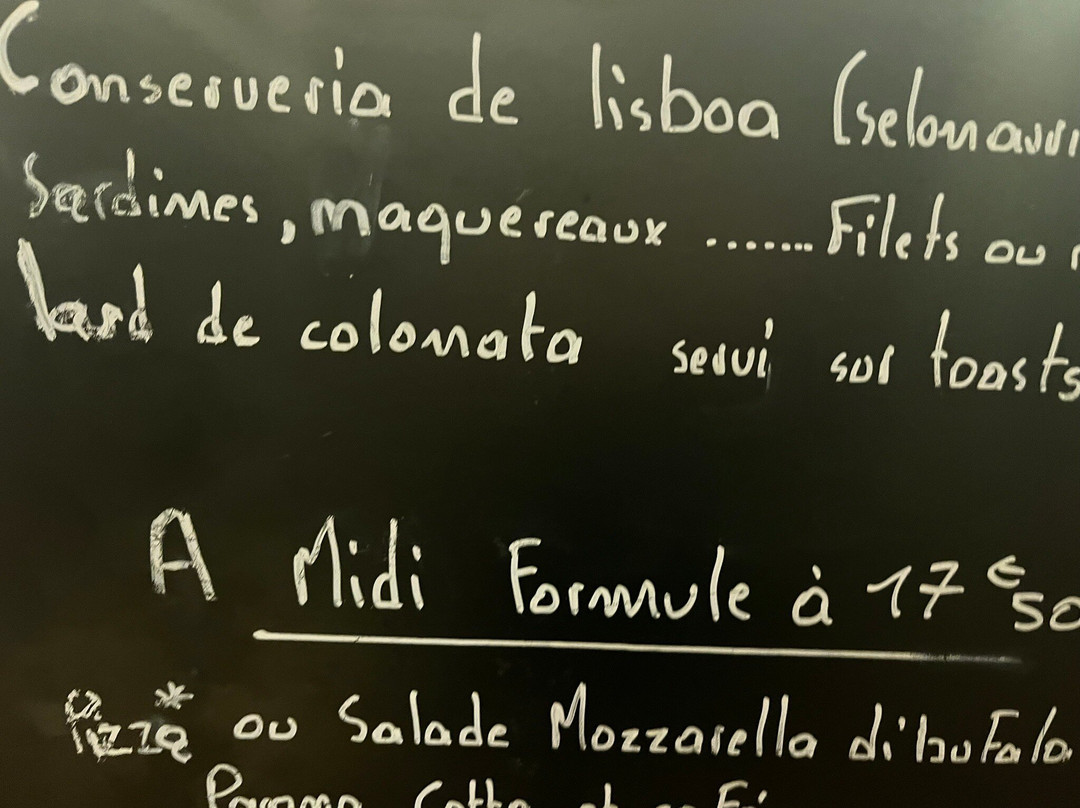 Conserveria de lisboa (selon
Sardines, maquereaux ....... Filets ou
lard de colonata servi sur toasts
A Midi Formule à 17€50
Pizza* ou Salade Mozzarella di bufala
Cotto